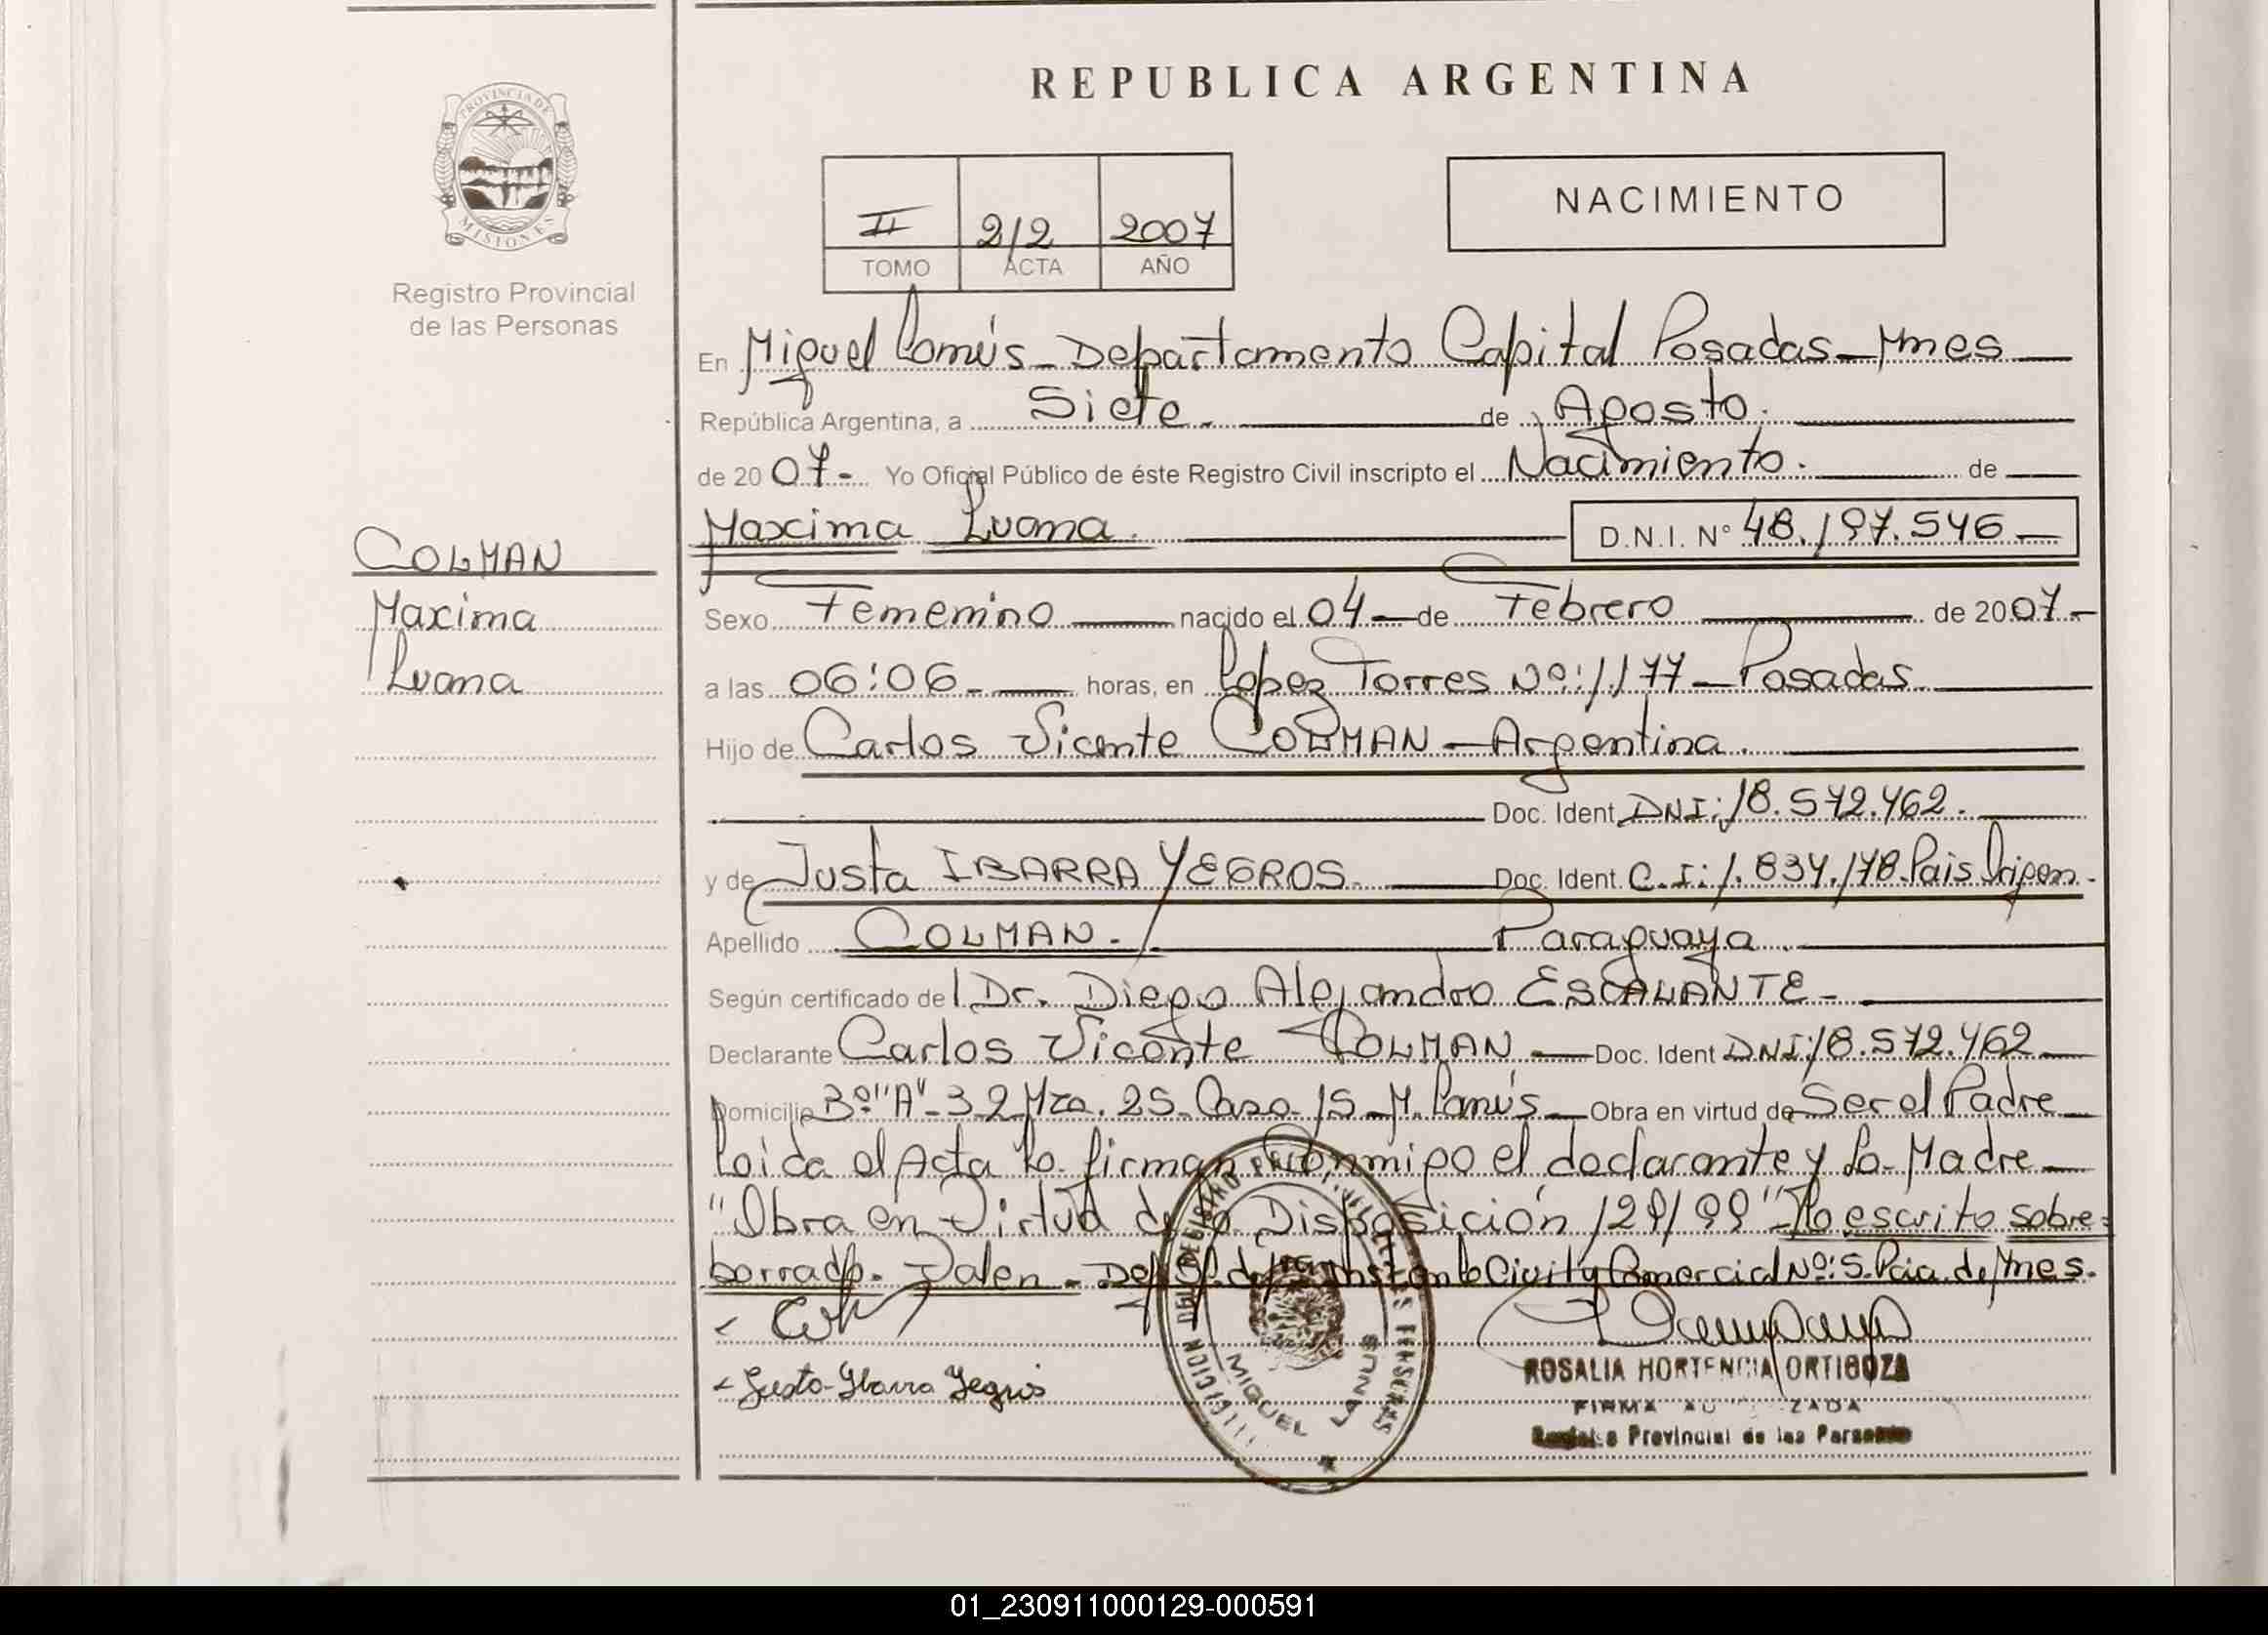 REPUBLICA ARGENTINA
PROVINCIA DE
MISIONES
Registro Provincial
de las Personas
II 212 2007
TOMO ACTA AÑO
NACIMIENTO
En Miguel Lanús - Departamento Capital Posadas - Mnes
República Argentina, a Siete. de Agosto.
de 2007- Yo Oficial Público de éste Registro Civil inscripto el Nacimiento. de
Maxima Luana. D.N.I. N° 48.197.546
COLMAN
Maxima
Luana
Sexo Femenino nacido el 04 de Febrero de 2007-
a las 06:06- horas, en Lopez Torres Nº: 1177 - Posadas
Hijo de Carlos Vicente COLMAN - Argentina.
Doc. Ident. DNI: 18.572.462.
y de Justa IBARRA YEGROS. Doc. Ident. C.I: 1.834.178 Pais Origen.
Apellido COLMAN. - Paraguaya
Según certificado del Dr. Diego Alejandro ESCALANTE -
Declarante Carlos Vicente COLMAN - Doc. Ident DNI: 18.572.462
Domicilio Bº "A" - 32 Mza. 25 - Casa - 15 - M. Lanús - Obra en virtud de Ser el Padre
Leida el Acta la firman conmigo el declarante y la Madre
"Obra en Virtud de la Disposición 129/99" - Lo escrito sobre-
borrado. Valen - Civil y Comercial Nº: 5. Pcia de Mnes.
Justa Ibarra Yegros
MIGUEL LANUS
ROSALIA HORTENCIA ORTIGOZA
FIRMA AUTORIZADA
Provincial de las Personas
01_230911000129-000591